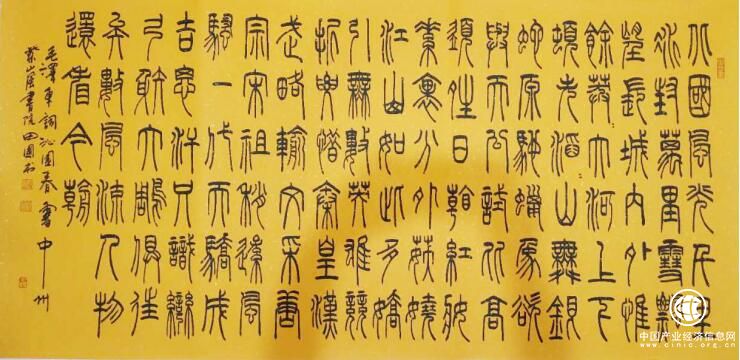 北國風光千里
冰封萬里雪飄
望長城內外惟
餘莽莽大河上下
頓失滔滔山舞銀
蛇原馳蠟象欲
與天公試比高
須晴日看紅妝
素裹分外妖嬈
江山如此多嬌
引無數英雄競
折腰惜秦皇漢
武略輸文采唐
宗宋祖稍遜風
騷一代天驕成
吉思汗只識彎
弓射大鵰俱往
矣數風流人物
還看今朝
毛澤東詞沁園春雪中州
紫山書院田國
中国产业经济信息网
www.cinic.org.cn